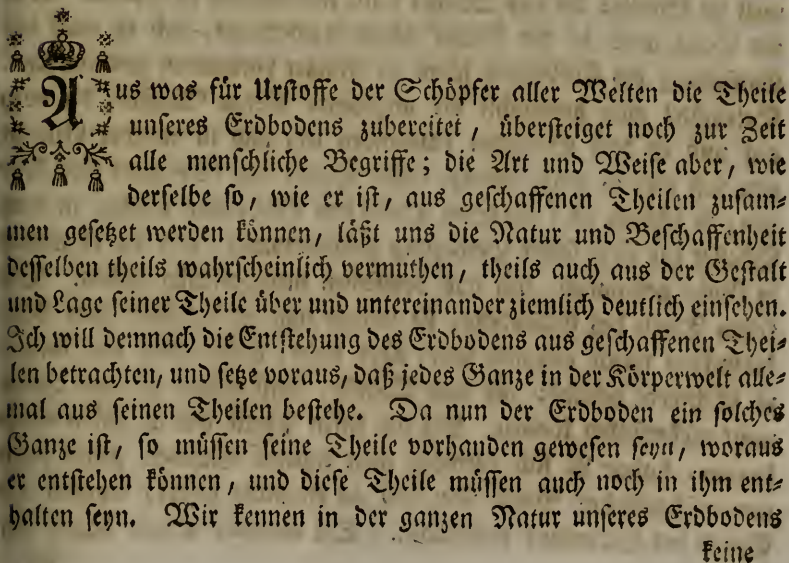 Aus was für Urstoffe der Schöpfer aller Welten die Theile
unseres Erdbodens zubereitet, übersteiget noch zur Zeit
alle menschliche Begriffe; die Art und Weise aber, wie
derselbe so, wie er ist, aus geschaffenen Theilen zusam⸗
men gesetzet werden können, läßt uns die Natur und Beschaffenheit
desselben theils wahrscheinlich vermuthen, theils auch aus der Gestalt
und Lage seiner Theile über und untereinander ziemlich deutlich einsehen.
Ich will demnach die Entstehung des Erdbodens aus geschaffenen Thei⸗
len betrachten, und setze voraus, daß jedes Ganze in der Körperwelt alle⸗
mal aus seinen Theilen bestehe. Da nun der Erdboden ein solches
Ganze ist, so müssen seine Theile vorhanden gewesen seyn, woraus
er entstehen können, und diese Theile müssen auch noch in ihm ent⸗
halten seyn. Wir kennen in der ganzen Natur unseres Erdbodens
keine